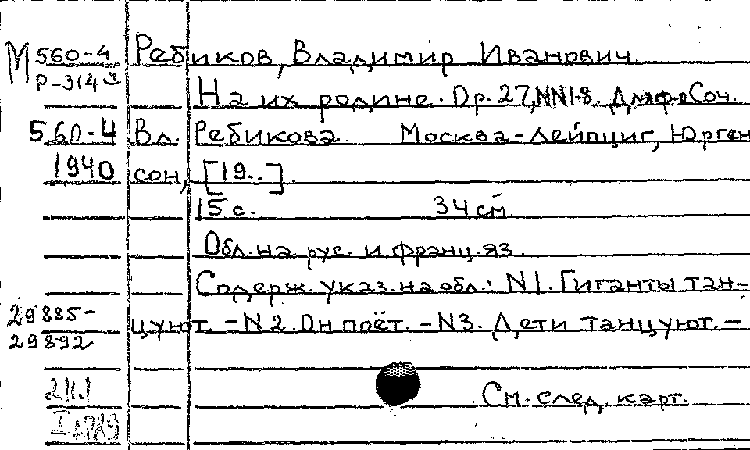 М 560-4 Ребиков, Владимир Иванович.
Р-314
На их родине. Op. 27, NN1-8. Для ф-п. Соч.
560-4 Вл. Ребикова Москва-Лейпциг, Юрген
1940 сон, [19..].
15 с. 34 см
Обл. на рус. и франц. яз.
Содерж. указ. на обл.: N1. Гиганты тан-
29885- цуют. - N2. Он поёт. - N3. Дети танцуют. -
29892
См. след. карт.